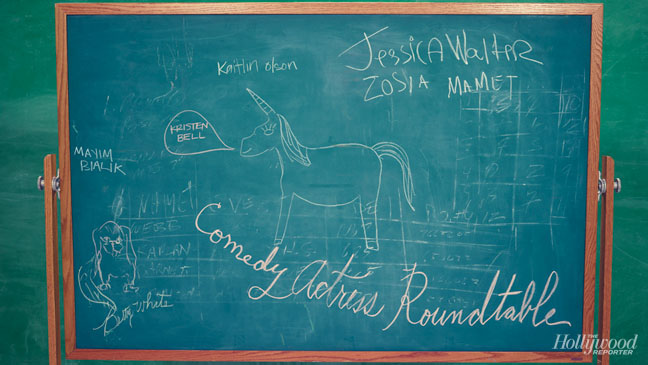 Kaitlin Olson
Jessica Walter
ZOSIA MAMET
KRISTEN
BELL
MAYIM
BIALIK
Betty White
Comedy Actress Roundtable
THE
Hollywood
REPORTER